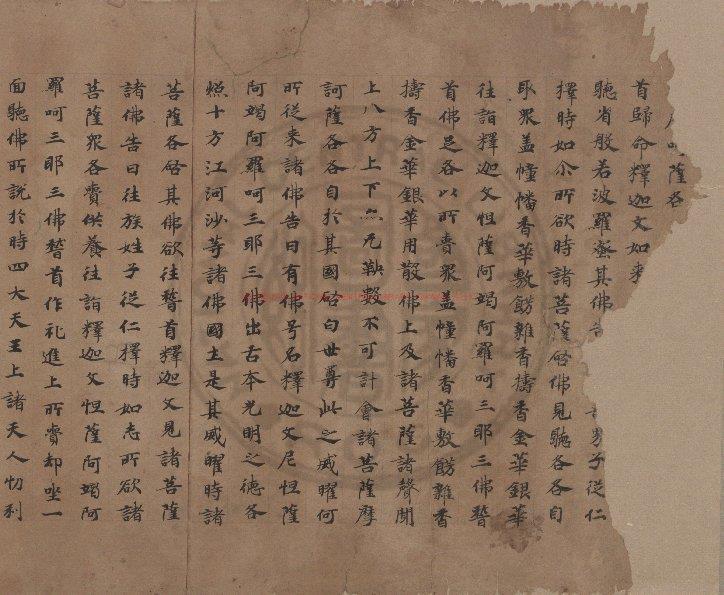 薩各
首歸命釋迦文如来
聽省般若波羅蜜其佛告 男子從仁
擇時如尒所欲時諸菩薩啓佛見聽各各自
取衆盖幢幡香華敷餝雜香擣香金華銀華
往詣釋迦文怛薩阿竭阿羅呵三耶三佛稽
首佛足各以所賷衆盖幢幡香華敷餝雜香
擣香金華銀華用散佛上及諸菩薩諸聲聞
上八方上下然无鞅數不可計會諸菩薩摩
訶薩各各自於其國啓白世尊此之威曜何
所從来諸佛告曰有佛号名釋迦文尼怛薩
阿竭阿羅呵三耶三佛出古本光明之德各
照十方江河沙等諸佛國土是其威曜時諸
菩薩各啓其佛欲往稽首釋迦文見諸菩薩
諸佛告曰往族姓子從仁擇時如志所欲諸
菩薩衆各賷供養往詣釋迦文怛薩阿竭阿
羅呵三耶三佛稽首作礼進上所賷却坐一
面聽佛所說於時四大天王上諸天人忉利